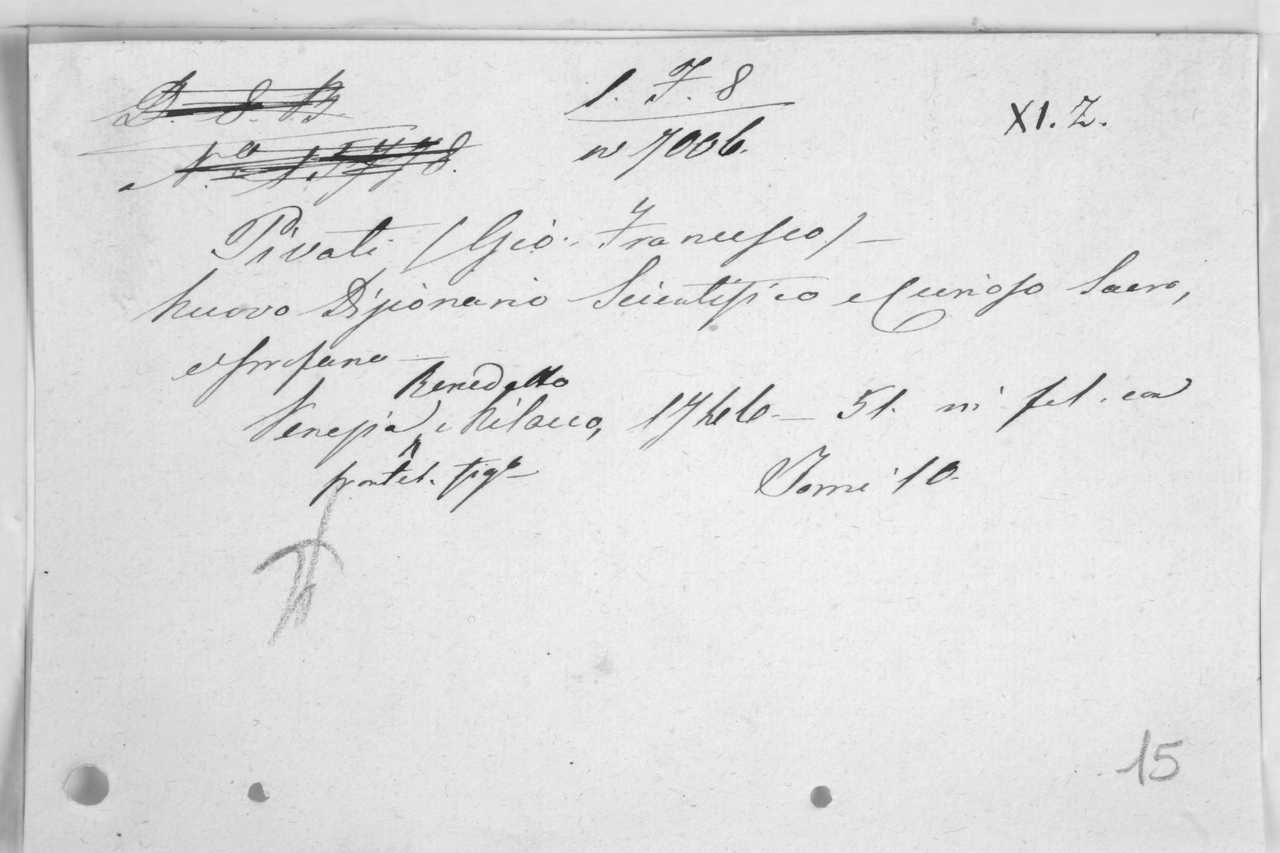 D. 8. B.
1. F. 8
XI. Z.
n 7006.
Pivati (Gio. Francesco) —
Nuovo Dizionario Scientifico e Curioso Sacro,
e profano —
Benedetto
Venezia, Milocco, 1746 — 51. in fol. con
frontesp. fig.
Tomi 10.
15